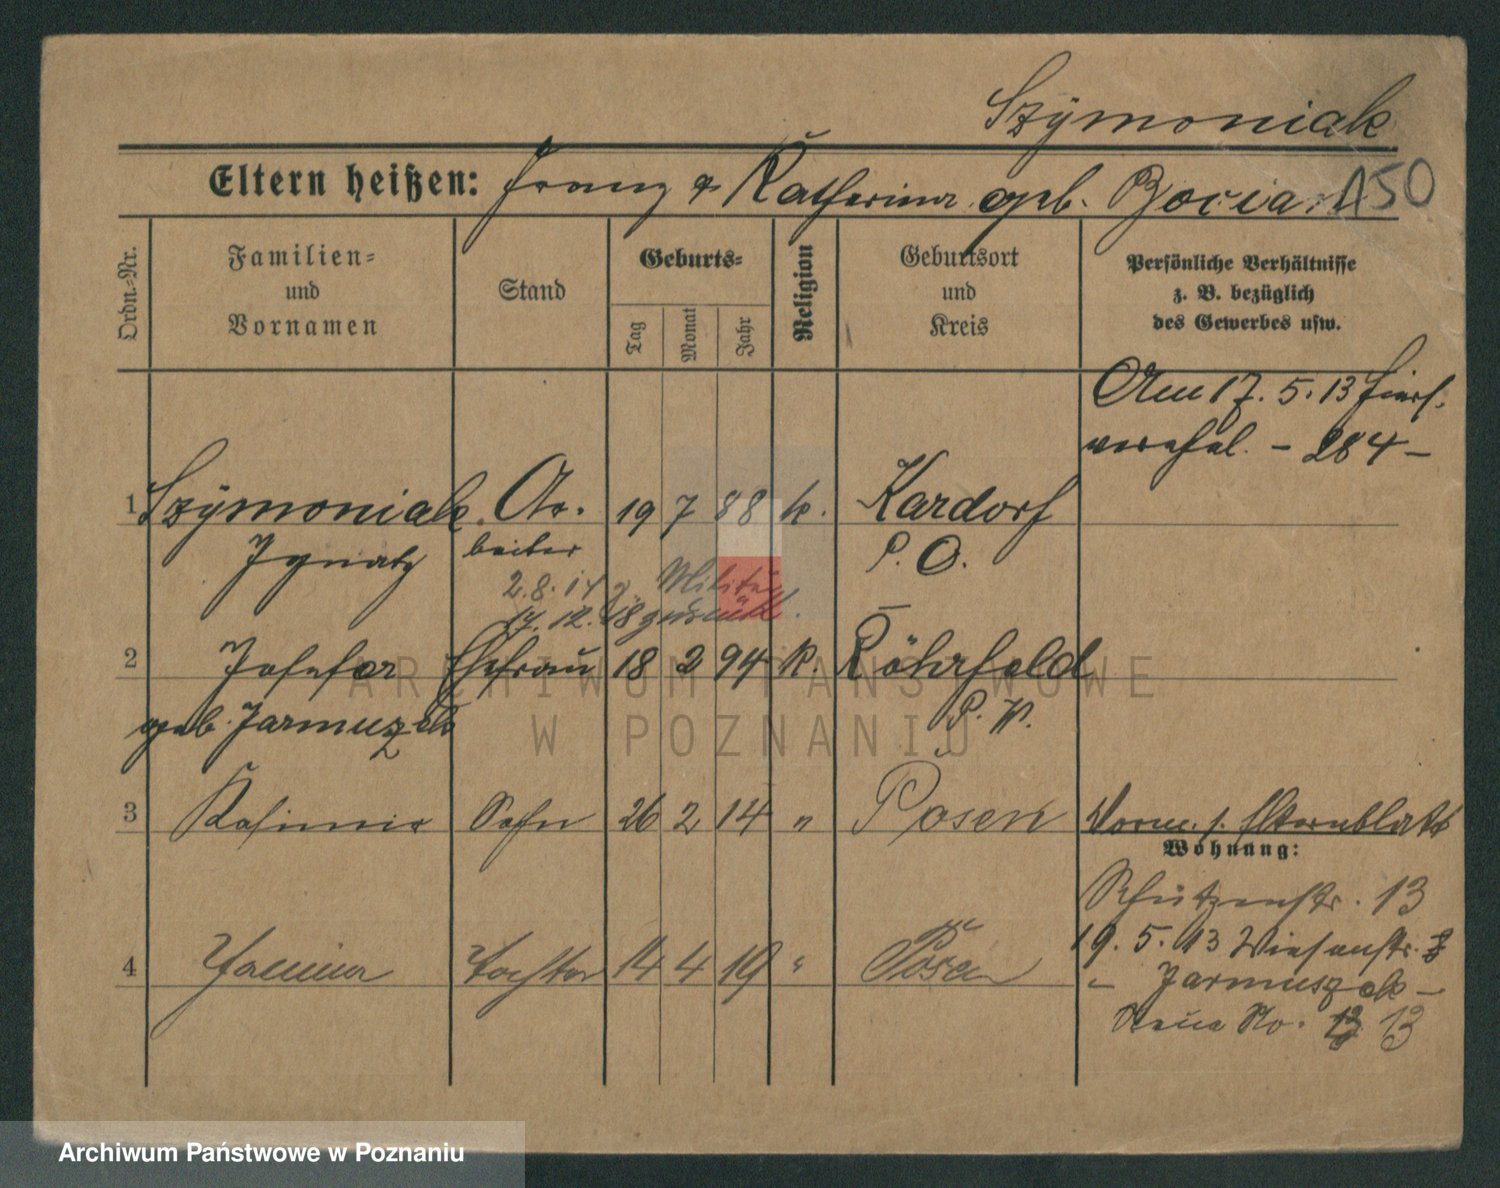 Szymoniak
Eltern heißen: Franz & Katharina geb. Bocian
150
Ordn.-Nr.
Familien-
und
Vornamen
Stand
Geburts-
Tag
Monat
Jahr
Religion
Geburtsort
und
Kreis
Persönliche Verhältnisse
z. B. bezüglich
des Gewerbes usw.
Am 17. 5. 13 hiers.
verehel. – 284 –
1 Szymoniak Ar- 19 7 88 k. Kardorf
Ignatz beiter P. O.
2. 8. 14 z. Militär
17. 12. 18 zurück.
2 Josefa Ehefrau 18 2 94 k. Röhrfeld
geb. Jarmuzek P. W.
3 Kasimir Sohn 26 2 14 " Posen Vorm. s. Elternblatt
Wohnung:
Schützenstr. 13
19. 5. 13 Wiesenstr.
4 Janina Tochter 14 4 19 " Posen
– Jarmuszek –
Neue No. 13
ARCHIWUM PAŃSTWOWE
W POZNANIU
Archiwum Państwowe w Poznaniu